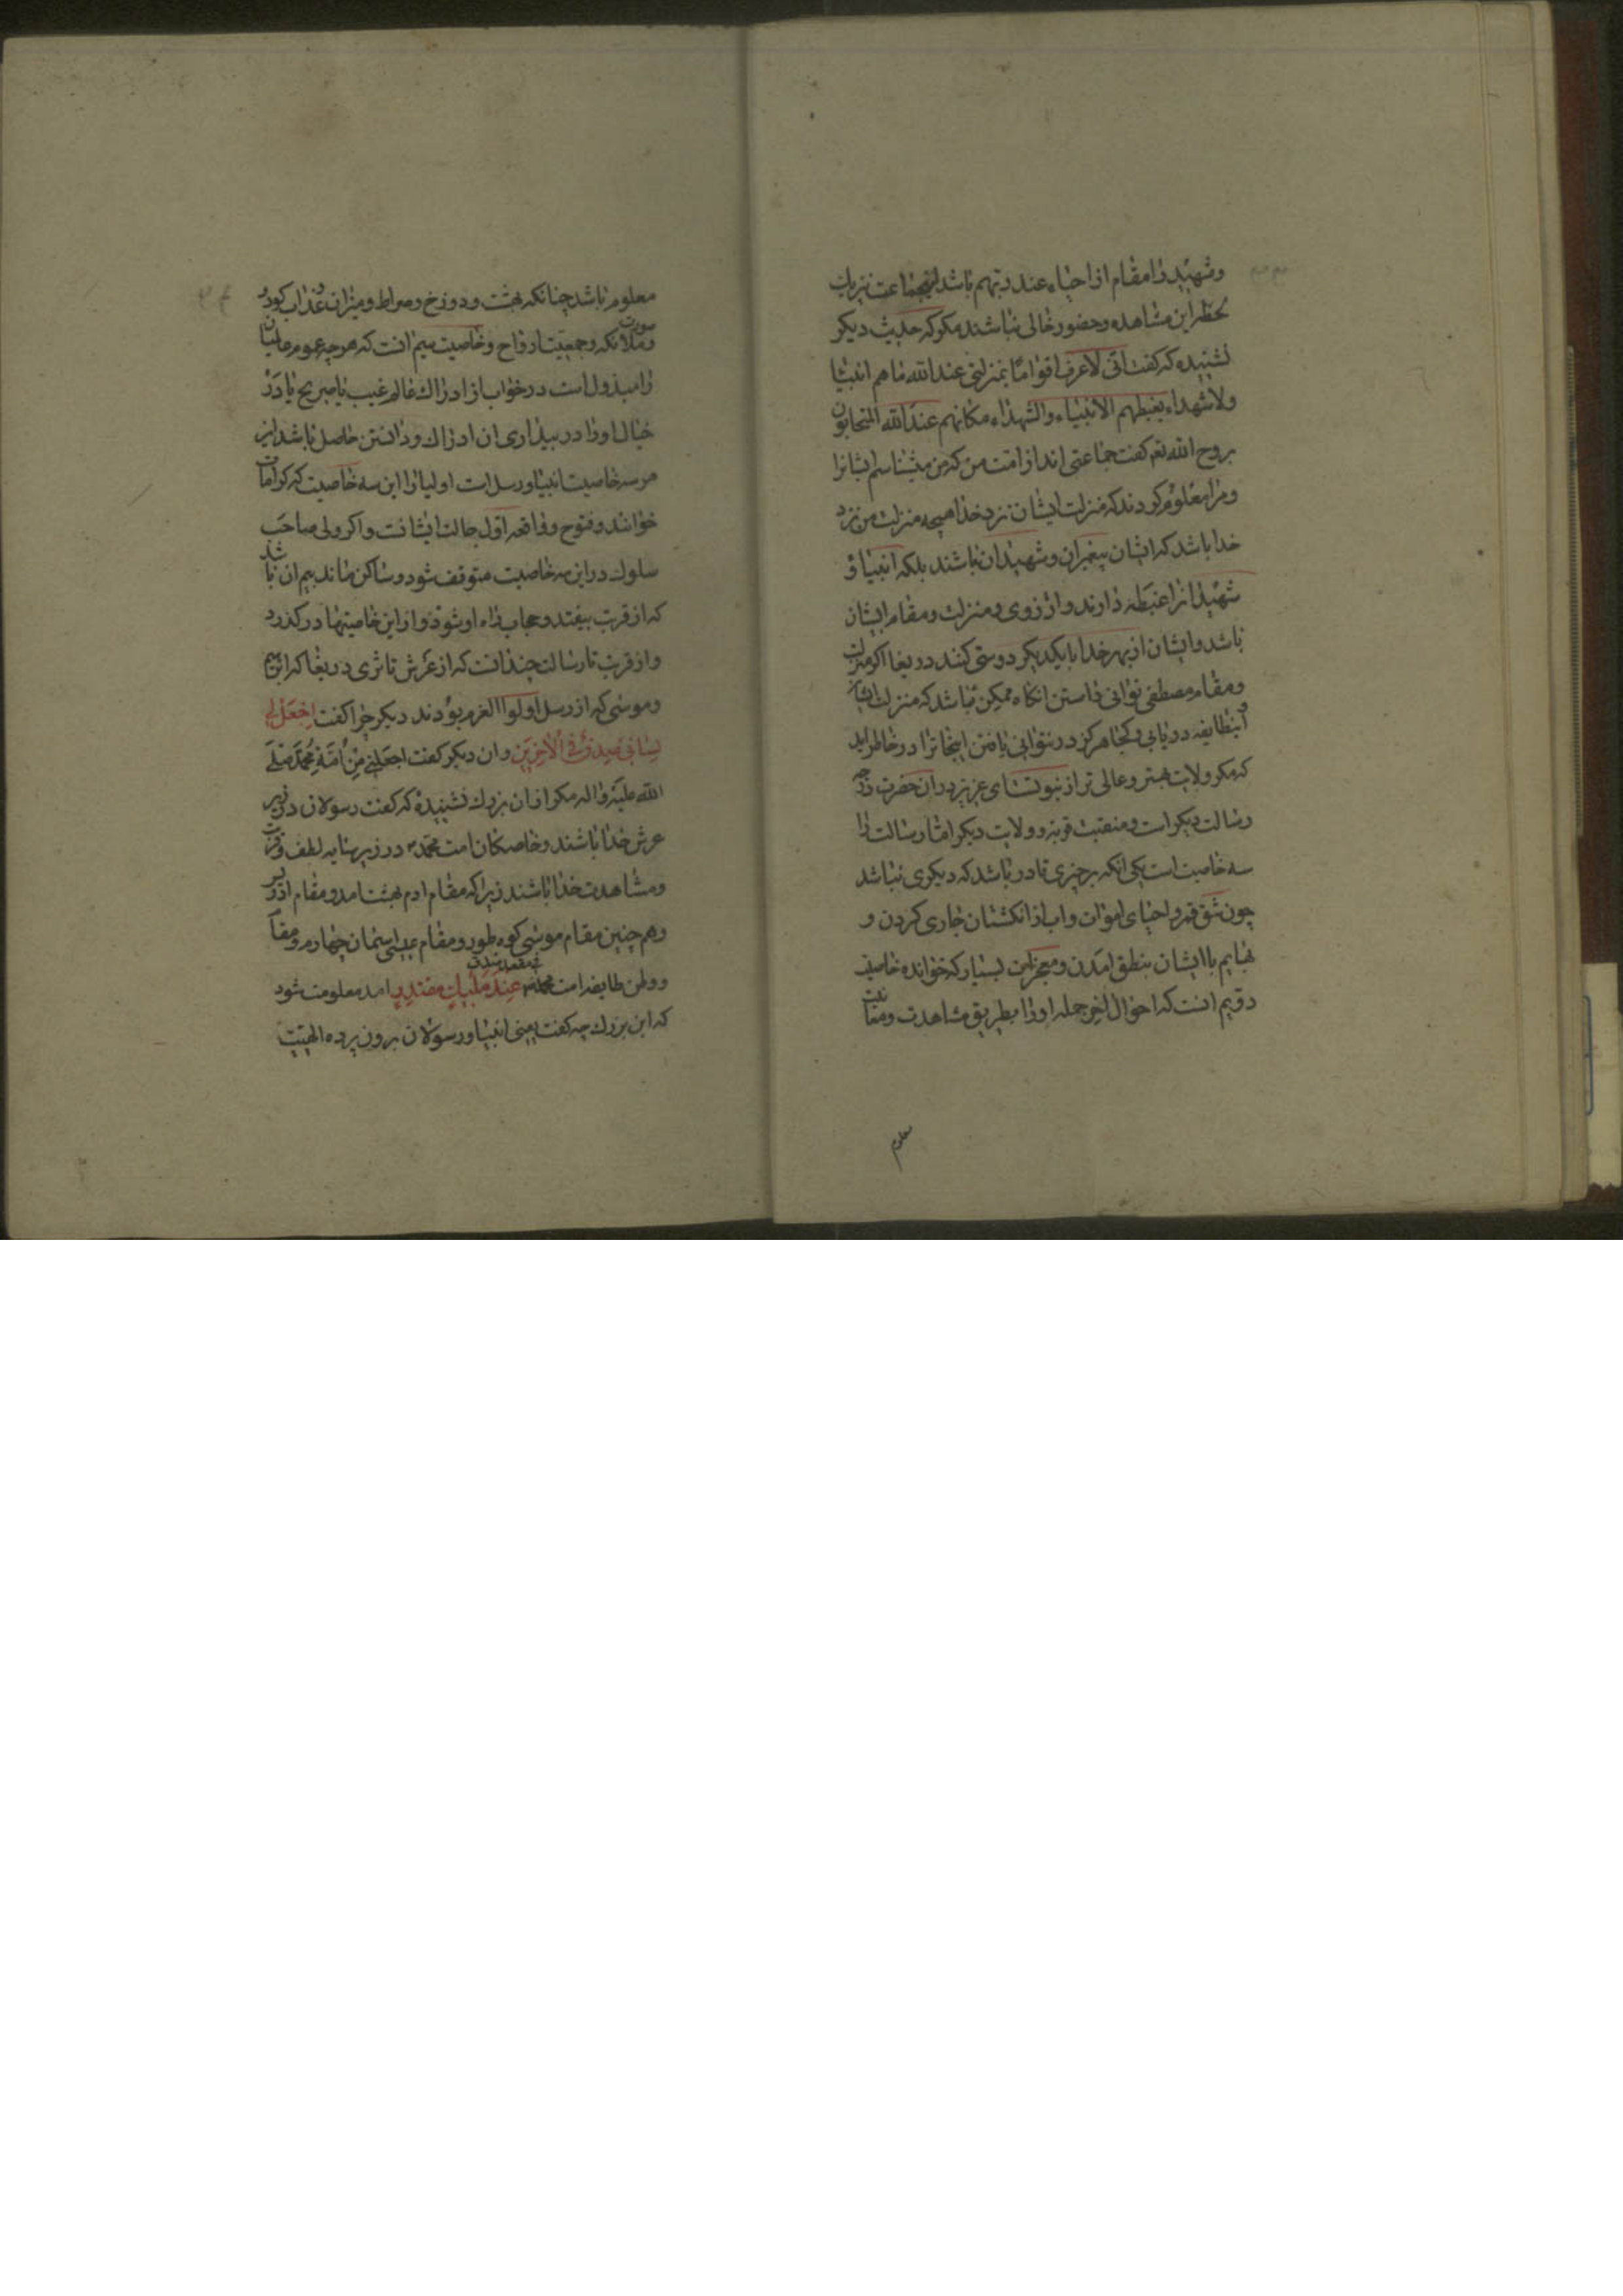 وشهید را مقام او احیاء عند ربهم باشد اینجماعت نیز یک
لحظه از این مشاهده وحضور خالی نباشند مکر که حدیث دیکر
نشنیده که کفت انی لاعرف اقواما بمنزلتی عند الله ما هم انبیا
ولا شهداء یغبطهم الانبیاء والشهداء مکانهم عند الله المتحابون
بروح الله تع کفت جماعتی اند از امت من که من میشناسم ایشانرا
ومرا معلوم کردند که منزلت ایشان نزد خدا همچه منزلت من نزد
خدا باشد که ایشان پیغمبران وشهیدان نباشند بلکه انبیا و
شهیدانرا غبطه دارند وارزوی منزلت ومقام ایشان
باشد وایشان از بهر خدا با یکدیکر دوستی کنند دریغا اکر منزلت
ومقام مصطفی توانی دانستن انکاه ممکن باشد که منزلت ایشان
اینطایفه دریابی وکجا هرکز در توانی یافتن اینجا ترا در خاطر اید
که مکر ولایت بهتر وعالی تر از نبوتست ای عزیز در ان حضرت درجه
رسالت دیکر است ومنقبت قربت وولایت دیکر اما رسالت را
سه خاصیت است یکی انکه بر چیزی قادر باشد که دیکری نباشد
چون شق قمر واحیای اموات واب از انکشتان جاری کردن و
بهایم با ایشان بنطق امدن ومعجزات بسیار که خوانده خاصیت
دویم انست که احوال اخر جمله اورا بطریق مشاهدت ومعاینت
معلوم
معلوم باشد چنانکه بهشت ودوزخ وصراط ومیزان وعذاب کور و
صورت
وملائکه وجمعیت ارواح وخاصیت سیم انست که هرچه عموم عالمیان
را مبذول است در خواب از ادراک عالم غیب یا صریح یا در
خیال اورا در بیداری ان ادراک ودانستن حاصل باشد این
هر سه خاصیت انبیا ورسل است اولیا را این سه خاصیت که کرامات
خوانند وفتوح وواقعه اول حالت ایشانست واکر ولی صاحب
سلوک در این سه خاصیت متوقف شود وساکن ماند بیم ان باشد
که از قربت بیفتد وحجاب راه او شود واز این خاصیتها درکذرد
واز قربت تا رسالت چندانست که از عرش تا ثری دریغا که ابرهیم
وموسی که از رسل اولوا العزم بودند دیکر چرا کفت اجعل لی
لسان صدق فی الاخرین وان دیکر کفت اجعلنی من امة محمد صلی
الله علیه واله مکر از ان بزرک نشنیده که کفت رسولان در زیر
عرش خدا باشند وخاصکان امت محمد در زیر سایه لطف وقربت
ومشاهدت خدا باشند زیرا که مقام ادم بهشت امد ومقام ادریس
وهم چنین مقام موسی کوه طور ومقام عیسی اسمان چهارم ومقام
فی مقعد صدق
ووطن طایفه امت محمد عند ملیک مقتدر امد معلومت شود
که این بزرک چه کفت یعنی انبیا ورسولان برون پرده الهیت